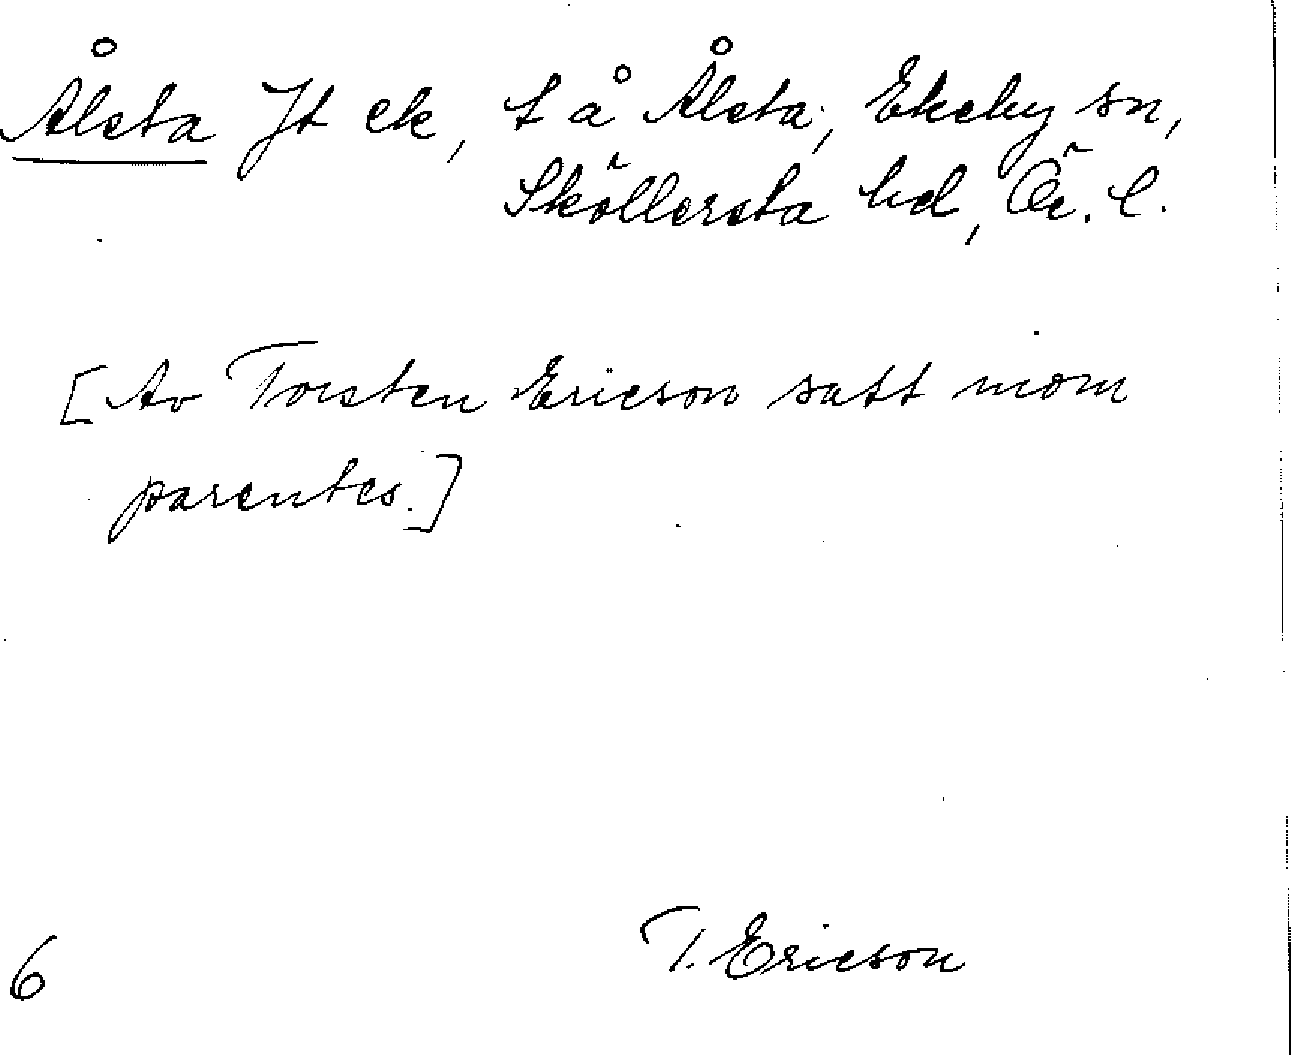 Ålsta Jt ek, t å Ålsta, Ekeby sn,
Sköllersta hd, Ör. l.
[Av Torsten Ericson satt inom
parentes.]
6 T. Ericson